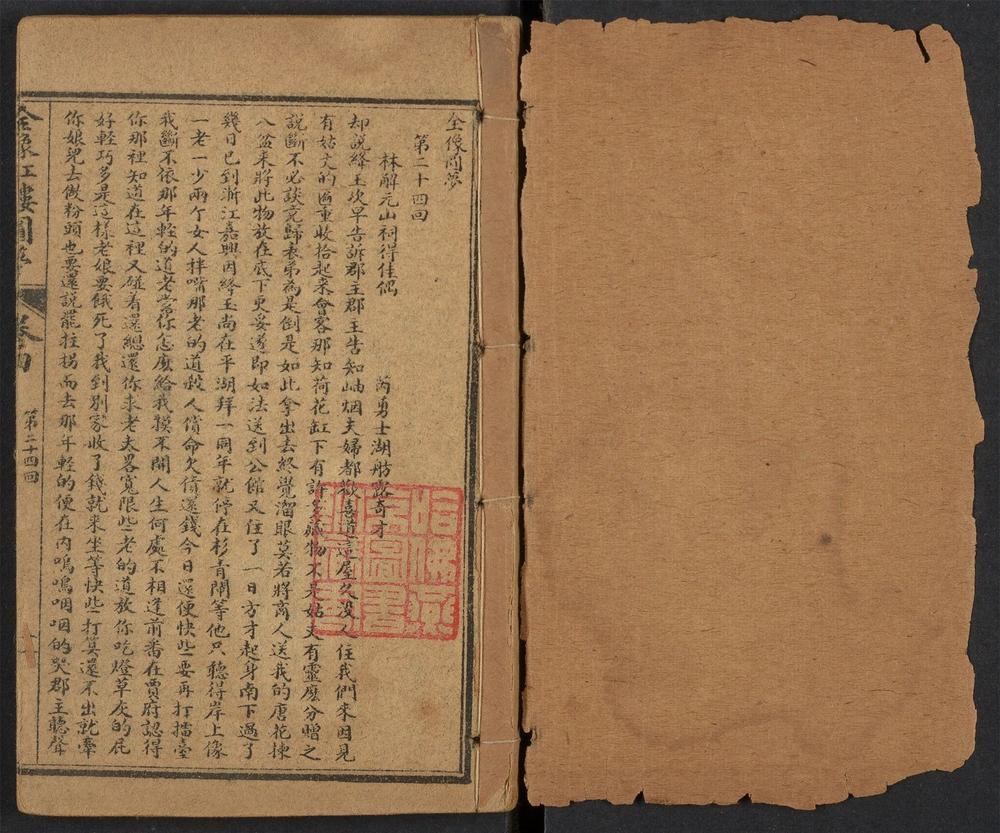 全像圓夢
第二十四回
林解元山祠得佳偶　芮勇士湖舫露奇才
却說絳玉次早告訴郡主郡主告知岫烟夫婦都歡喜道這屋久沒人住我們來因見
有姑丈的匾重收拾起來會客那知荷花缸下有許多藏物不是姑丈有靈麽分贈之
說斷不必談竟歸表弟為是倒是如此拿出去終覺溜眼莫若將商人送我的唐花揀
八盆來將此物放在底下更妥遂即如法送到公館又住了一日方才起身南下過了
幾日已到浙江嘉興因絳玉尚在平湖拜一同年就停在杉青閘等他只聽得岸上像
一老一少兩個女人拌嘴那老的道殺人償命欠債還錢今日還便快些要再打擂臺
我斷不依那年輕的道老當你怎麽給我摸不開人生何處不相逢前番在賈府認得
你那裡知道在這裡又碰着還總還你求老太畧寬限些老的道放你吃燈草灰的屁
好輕巧多是這樣老娘要餓死了我到別家收了錢就來坐等快些打算還不出就牽
你娘兒去做粉頭也要還說罷拄拐而去那年輕的便在內嗚嗚咽咽的哭郡主聽聲
全像紅樓圓夢
卷四
第二十四回